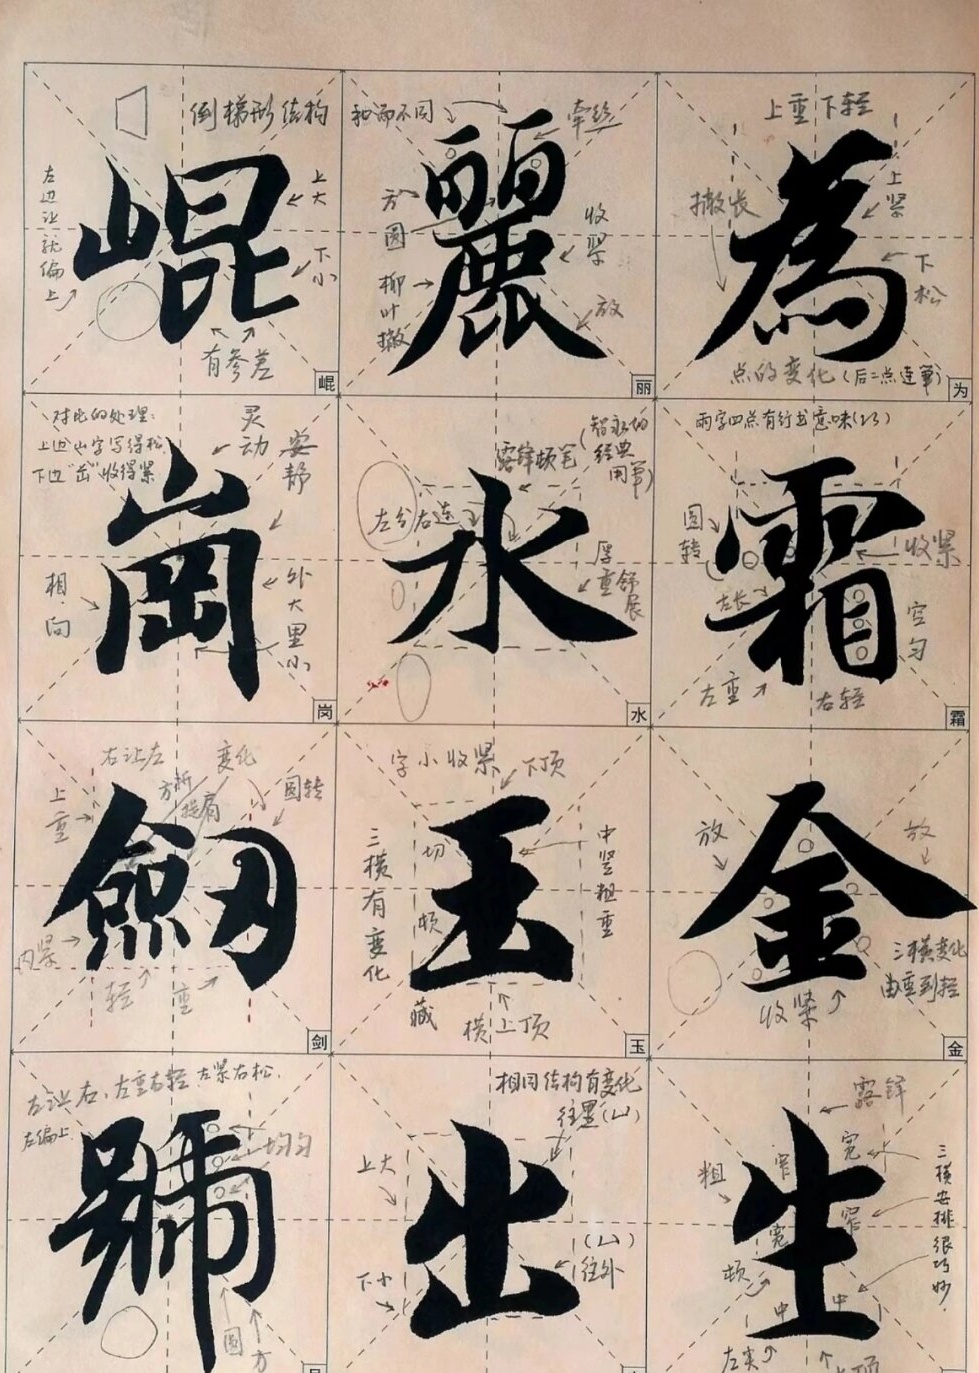 為
上重下轻
撇长
上紧
下松
点的变化(后二点连笔)
为
麗
和而不同
牵丝
方圆
收紧
柳叶撇
放
丽
崐
倒梯形结构
左边让就偏上
上大
下小
有参差
崐
霜
雨字四点有行书意味
圆转
收紧
左长
空匀
左重
右轻
霜
水
露锋顿笔
(智永的经典用笔)
左分右连
厚重舒展
水
崗
对比的处理:
上边山字写得松
下边"岳"收得紧
灵动
安静
相向
外大里小
岗
金
放
放
三横变化
由重到轻
收紧
金
玉
字小收紧
下顶
切
顿
三横有变化
中竖粗重
藏
横上顶
玉
劒
右让左
变化
方折
提肩
圆转
上重
内紧
轻
重
剑
生
露锋
粗
窄
宽
宽
窄
顿
中
中
三横安排很巧妙.
左尖
上顶
出
相同结构有变化
往里(山)
上大
(山)往外
下小
號
左让右,左重右轻 左紧右松.
左偏上
均匀
圆
方